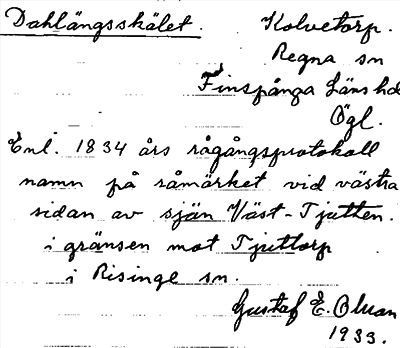 Dahlängsskälet.
Kolvetorp.
Regna sn
Finspånga Läns hd
Ögl.
Enl. 1834 års rågångsprotokoll
namn på råmärket vid västra
sidan av sjön Väst-Tjutten.
i gränsen mot Tjuttorp
i Risinge sn.
Gustaf E. Olsson
1933.